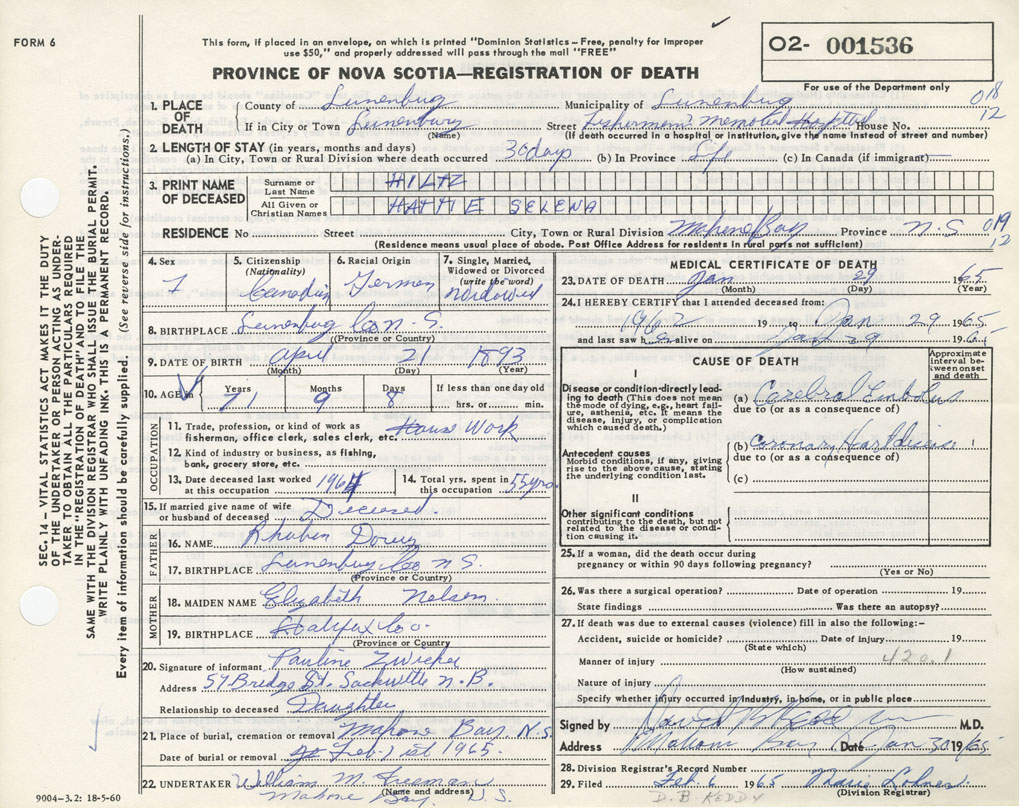 FORM 6
This form, if placed in an envelope, on which is printed "Dominion Statistics – Free, penalty for improper
use $50," and properly addressed will pass through the mail "FREE"
O2- 001536
For use of the Department only
PROVINCE OF NOVA SCOTIA—REGISTRATION OF DEATH
SEC. 14 – VITAL STATISTICS ACT MAKES IT THE DUTY
OF THE UNDERTAKER OR PERSON ACTING AS UNDER-
TAKER TO OBTAIN ALL THE PARTICULARS REQUIRED
IN THE "REGISTRATION OF DEATH" AND TO FILE THE
SAME WITH THE DIVISION REGISTRAR WHO SHALL ISSUE THE BURIAL PERMIT.
WRITE PLAINLY WITH UNFADING INK. THIS IS A PERMANENT RECORD.
Every item of information should be carefully supplied. (See reverse side for instructions.)
1. PLACE OF DEATH
County of Lunenburg Municipality of Lunenburg 018
If in City or Town Lunenburg Street Fishermen's Memorial Hospital House No. 12
(Name) (If death occurred in a hospital or institution, give the name instead of street and number)
2. LENGTH OF STAY (in years, months and days)
(a) In City, Town or Rural Division where death occurred 30 days (b) In Province Life (c) In Canada (if immigrant) —
3. PRINT NAME OF DECEASED
Surname or Last Name HILTZ
All Given or Christian Names HATTIE SELENA
RESIDENCE No Street City, Town or Rural Division Mahone Bay Province N.S 019
12
(Residence means usual place of abode. Post Office Address for residents in rural parts not sufficient)
4. Sex F
5. Citizenship (Nationality) Canadian
6. Racial Origin German
7. Single, Married, Widowed or Divorced (write the word) Widowed
8. BIRTHPLACE Lunenburg Co N.S.
(Province or Country)
9. DATE OF BIRTH April 21 1893
(Month) (Day) (Year)
10. AGE Years 71 Months 9 Days 8 If less than one day old
hrs. or min.
OCCUPATION
11. Trade, profession, or kind of work as House Work
fisherman, office clerk, sales clerk, etc.
12. Kind of industry or business, as fishing,
bank, grocery store, etc.
13. Date deceased last worked at this occupation 1964
14. Total yrs. spent in this occupation 55 yrs
15. If married give name of wife or husband of deceased Deceased.
FATHER
16. NAME Rhuben
17. BIRTHPLACE Lunenburg Co N.S.
(Province or Country)
MOTHER
18. MAIDEN NAME Elizabeth Nelson
19. BIRTHPLACE Halifax Co.
(Province or Country)
20. Signature of informant Pauline Zwicker
Address 57 Bridge St. Sackville N.B.
Relationship to deceased Daughter
21. Place of burial, cremation or removal Mahone Bay, N.S.
Date of burial or removal Feb. 1st 1965.
22. UNDERTAKER William M. Freeman
(Name and address)
Mahone Bay N.S.
9004-3.2: 18-5-60
MEDICAL CERTIFICATE OF DEATH
23. DATE OF DEATH Jan 29 1965
(Month) (Day) (Year)
24. I HEREBY CERTIFY that I attended deceased from:
1962 19 to Jan 29 1965
and last saw her alive on Jan 29 1965
CAUSE OF DEATH
Approximate interval between onset and death
I
Disease or condition directly lead-
ing to death (This does not mean
the mode of dying, e.g., heart failure,
asthenia, etc. It means the
disease, injury, or complication
which caused death.)
(a) Cerebral Embolus
due to (or as a consequence of)
Antecedent causes
Morbid conditions, if any, giving
rise to the above cause, stating
the underlying condition last.
(b) Coronary Heart disease
due to (or as a consequence of)
(c)
II
Other significant conditions
contributing to the death, but not
related to the disease or condi-
tion causing it.
25. If a woman, did the death occur during
pregnancy or within 90 days following pregnancy?
(Yes or No)
26. Was there a surgical operation? Date of operation 19
State findings Was there an autopsy?
27. If death was due to external causes (violence) fill in also the following:–
Accident, suicide or homicide? Date of injury 19
(State which)
Manner of injury 420.1
(How sustained)
Nature of injury
Specify whether injury occurred in industry, in home, or in public place
Signed by David M.D.
Address Mahone Bay Date Jan 30 1965
28. Division Registrar's Record Number
29. Filed Feb 6 1965 Marie
(Division Registrar)
D. B. KEDDY